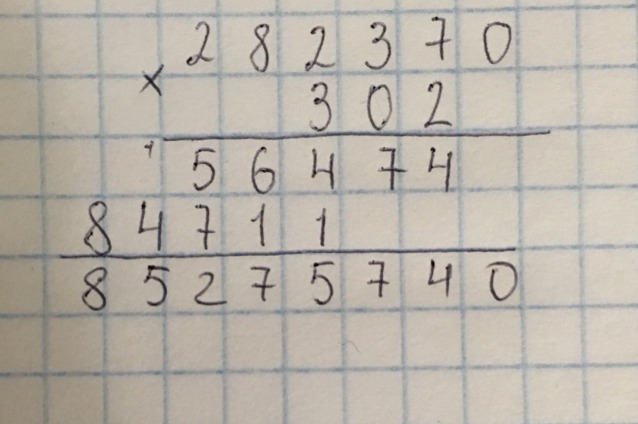 282370
×
302
56474
84711
85275740